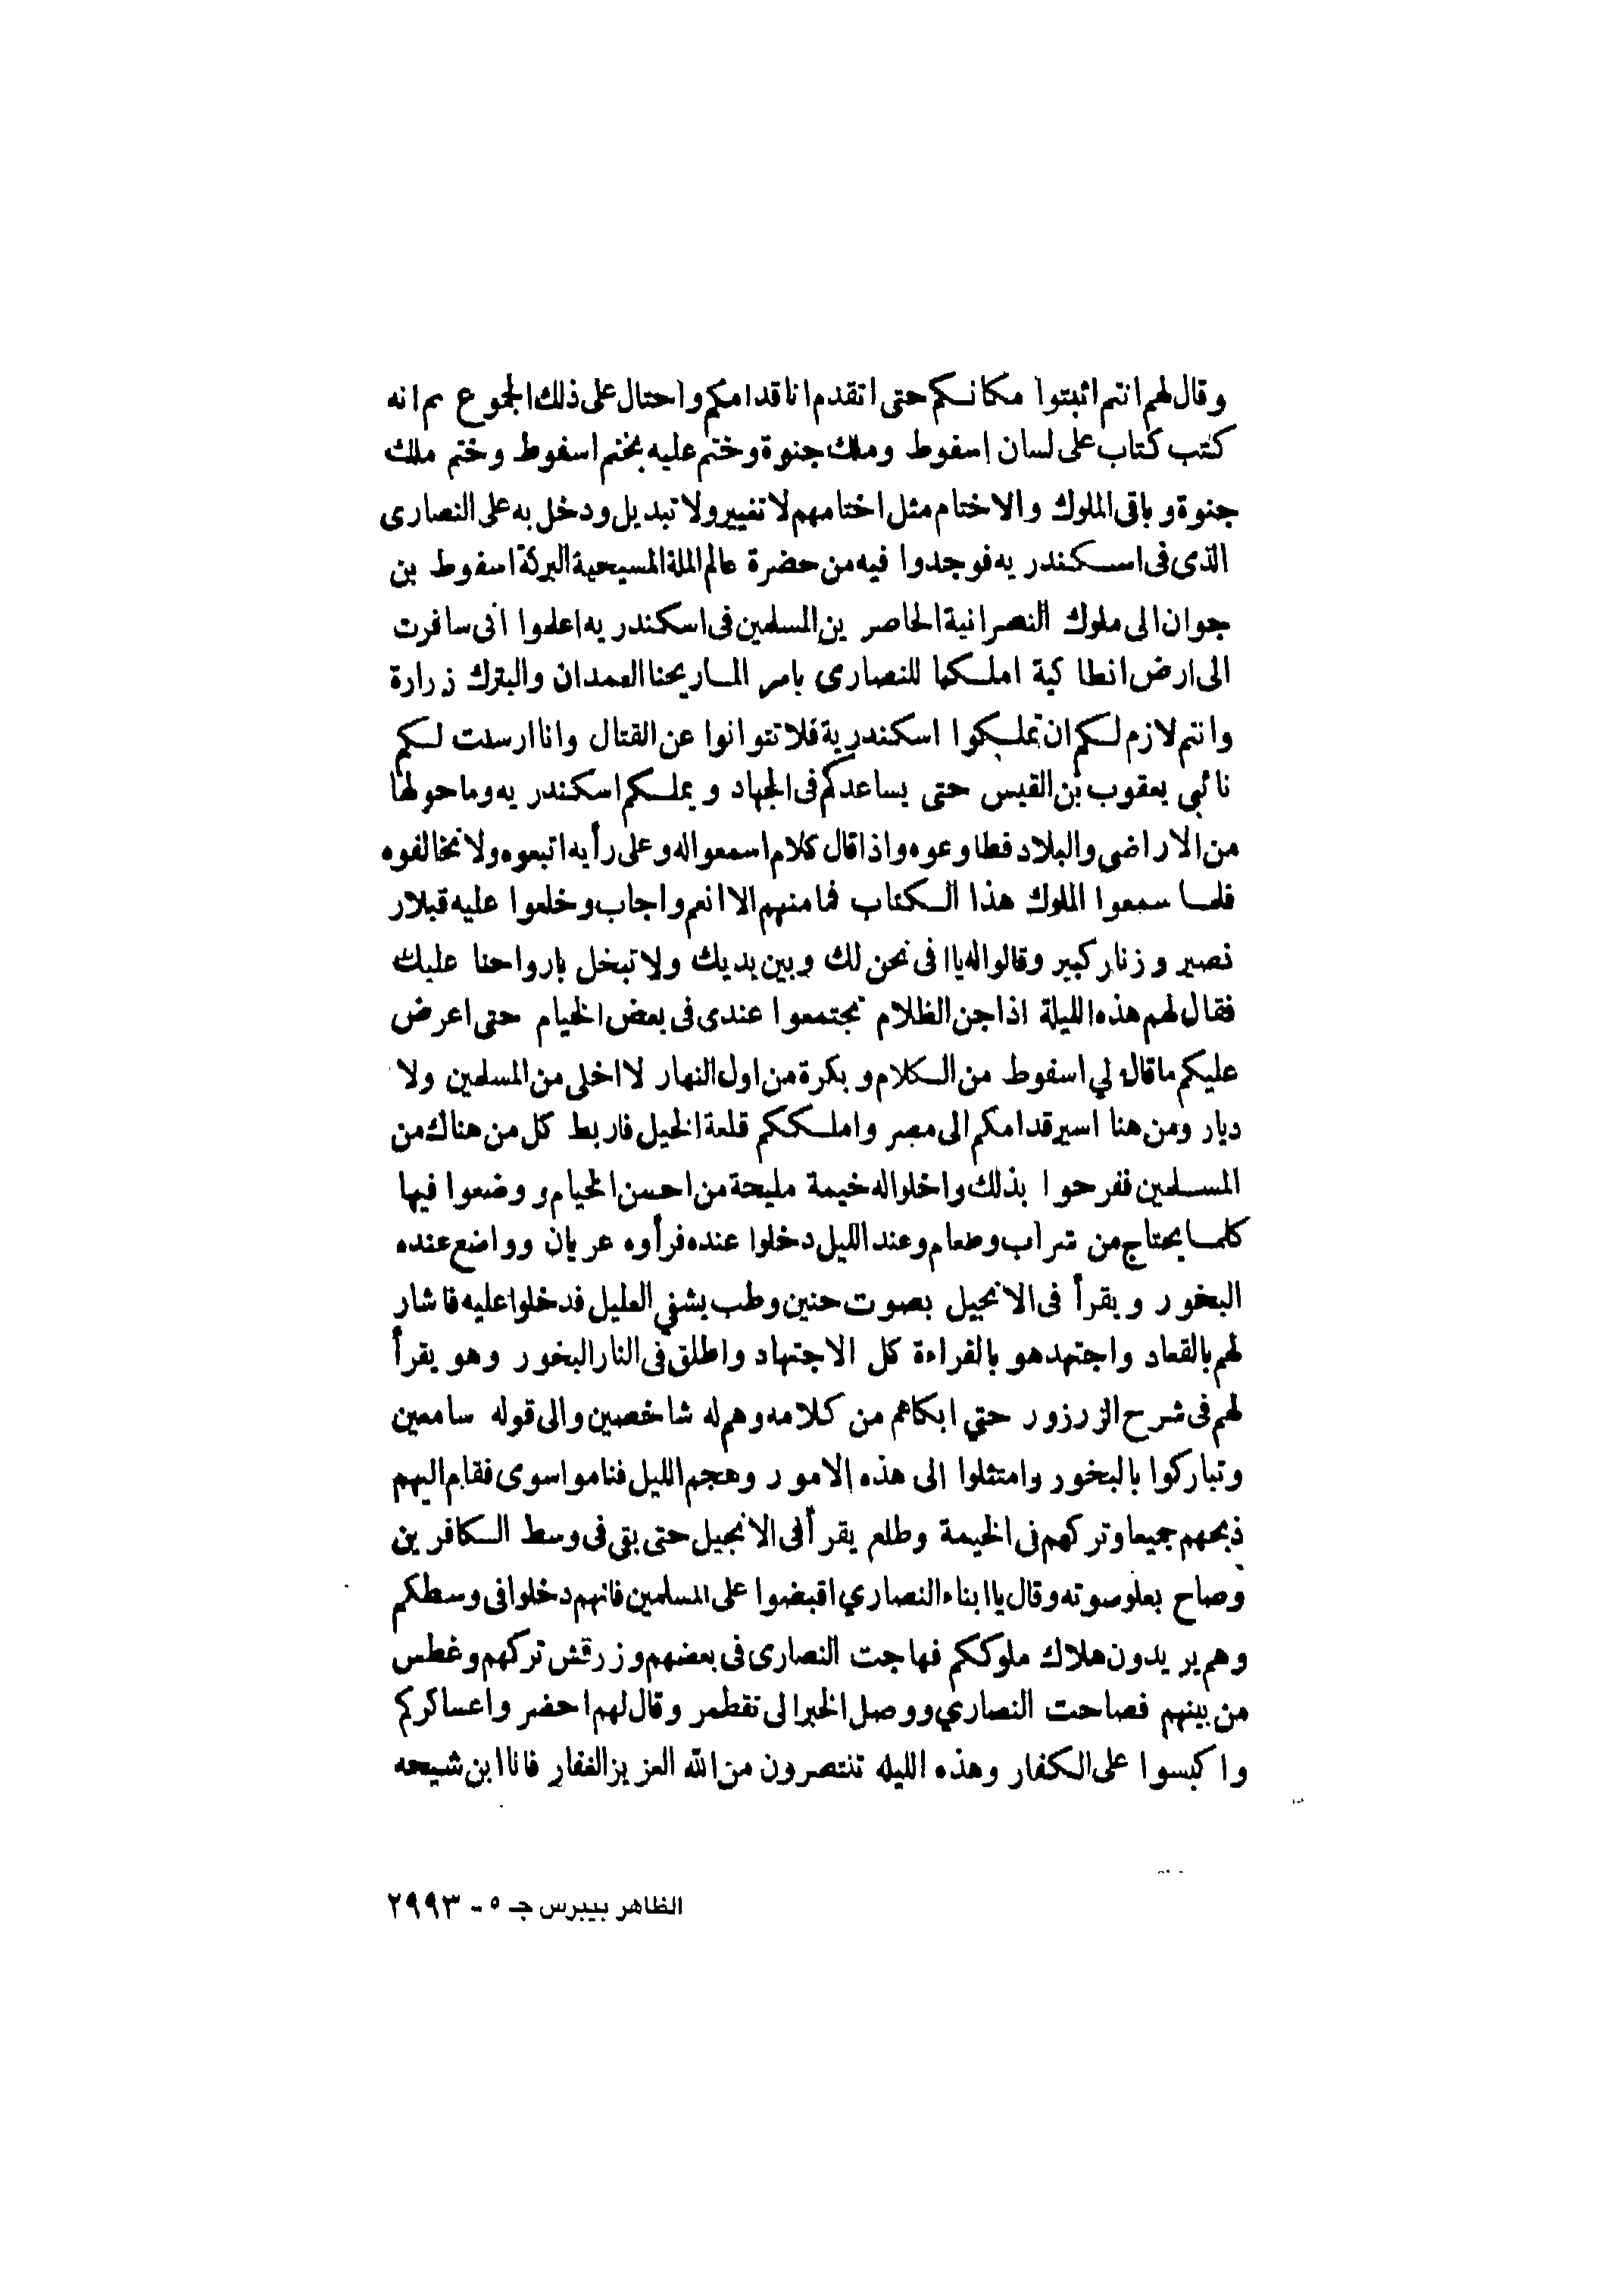 وقال لهم انتم اثبتوا مكانكم حتى اتقدم انا قدامكم واحتال على ذلك الجموع ثم انه
كتب كتاب على لسان اسفوط وملك جنوة وختم عليه بختم اسفوط وختم ملك
جنوة وباقى الملوك والاختام مثل اختامهم لا تغيير ولا تبديل ودخل به على النصارى
الذى فى اسكندريه فوجدوا فيه من حضرة عالم الملة المسيحية البركة اسفوط بن
جوان الى ملوك النصرانية الحاصرين المسلمين فى اسكندريه اعلموا انى سافرت
الى ارض انطاكية املكها للنصارى بامر الماريحنا العمدان والبترك زرارة
وانتم لازم لكم ان تملكوا اسكندرية فلا تتوانوا عن القتال وانا ارسلت لكم
نائبي يعقوب بن القيس حتى يساعدكم فى الجهاد ويملككم اسكندريه وما حولها
من الاراضى والبلاد فطاوعوه واذا قال كلام اسمعوا له وعلى رأيه اتبعوه ولا تخالفوه
فلما سمعوا الملوك هذا الكتاب فما منهم الا انعم واجاب وخلعوا عليه قبلار
نصير وزنار كبير وقالوا له يا ابى نحن لك وبين يديك ولا تبخل بارواحنا عليك
فقال لهم هذه الليلة اذا جن الظلام تجتمعوا عندى فى بعض الخيام حتى اعرض
عليكم ما قال لي اسفوط من الكلام وبكرة من اول النهار لا اخلى من المسلمين ولا
ديار ومن هنا اسير قدامكم الى مصر واملككم قلعة الخيل فاربط كل من هناك من
المسلمين ففرحوا بذلك واخلوا له خيمة مليحة من احسن الخيام ووضعوا فيها
كلما يحتاج من شراب وطعام وعند الليل دخلوا عنده فرأوه عريان وواضع عنده
البخور ويقرأ فى الانجيل بصوت حنين وطب يشفي العليل فدخلوا عليه فاشار
لهم بالقعاد واجتهد هو بالقراءة كل الاجتهاد واطلق فى النار البخور وهو يقرأ
لهم فى شرح الزرزور حتي ابكاهم من كلامه وهم له شاخصين والى قوله سامعين
وتباركوا بالبخور وامتثلوا الى هذه الامور وهجم الليل فناموا سوى فقام اليهم
ذبحهم جميعا وتركهم فى الخيمة وطلع يقرأ فى الانجيل حتى بقى فى وسط الكافرين
وصاح بعلو صوته وقال يا ابناء النصاري اقبضوا على المسلمين فانهم دخلوا فى وسطكم
وهم يريدون هلاك ملوككم فهاجت النصارى فى بعضهم وزرقش تركهم وغطس
من بينهم فصاحت النصاري ووصل الخبر الى تقطمر وقال لهم احضروا عساكركم
واكبسوا على الكفار وهذه الليله تنتصرون من الله العزيز الغفار فانا ابن شيحه
الظاهر بيبرس جـ ٥ - ٢٩٩٣